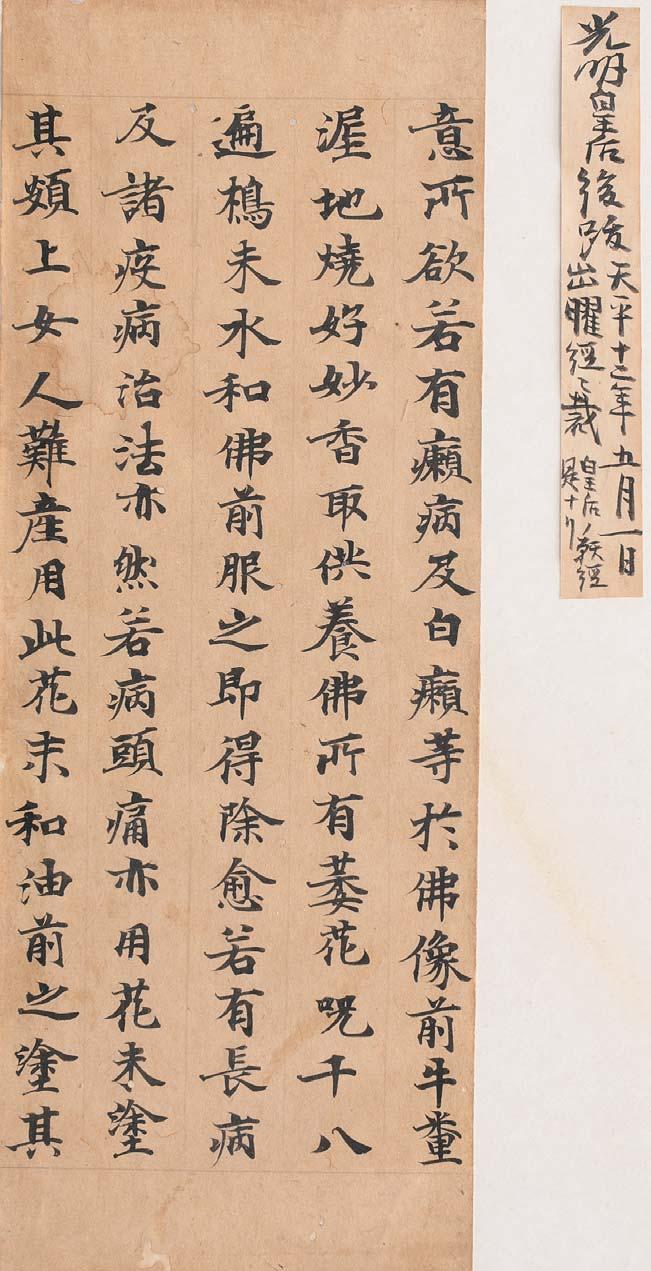 光明皇后後跋 天平十二年五月一日
出曜経之裁 皇后ノ願経
是ナリ
意所欲若有癩病及白癩等於佛像前牛糞
渥地燒好妙香取供養佛所有萎花呪千八
遍檮末水和佛前服之即得除愈若有長病
及諸疫病治法亦然若病頭痛亦用花末塗
其頞上女人難產用此花末和油前之塗其